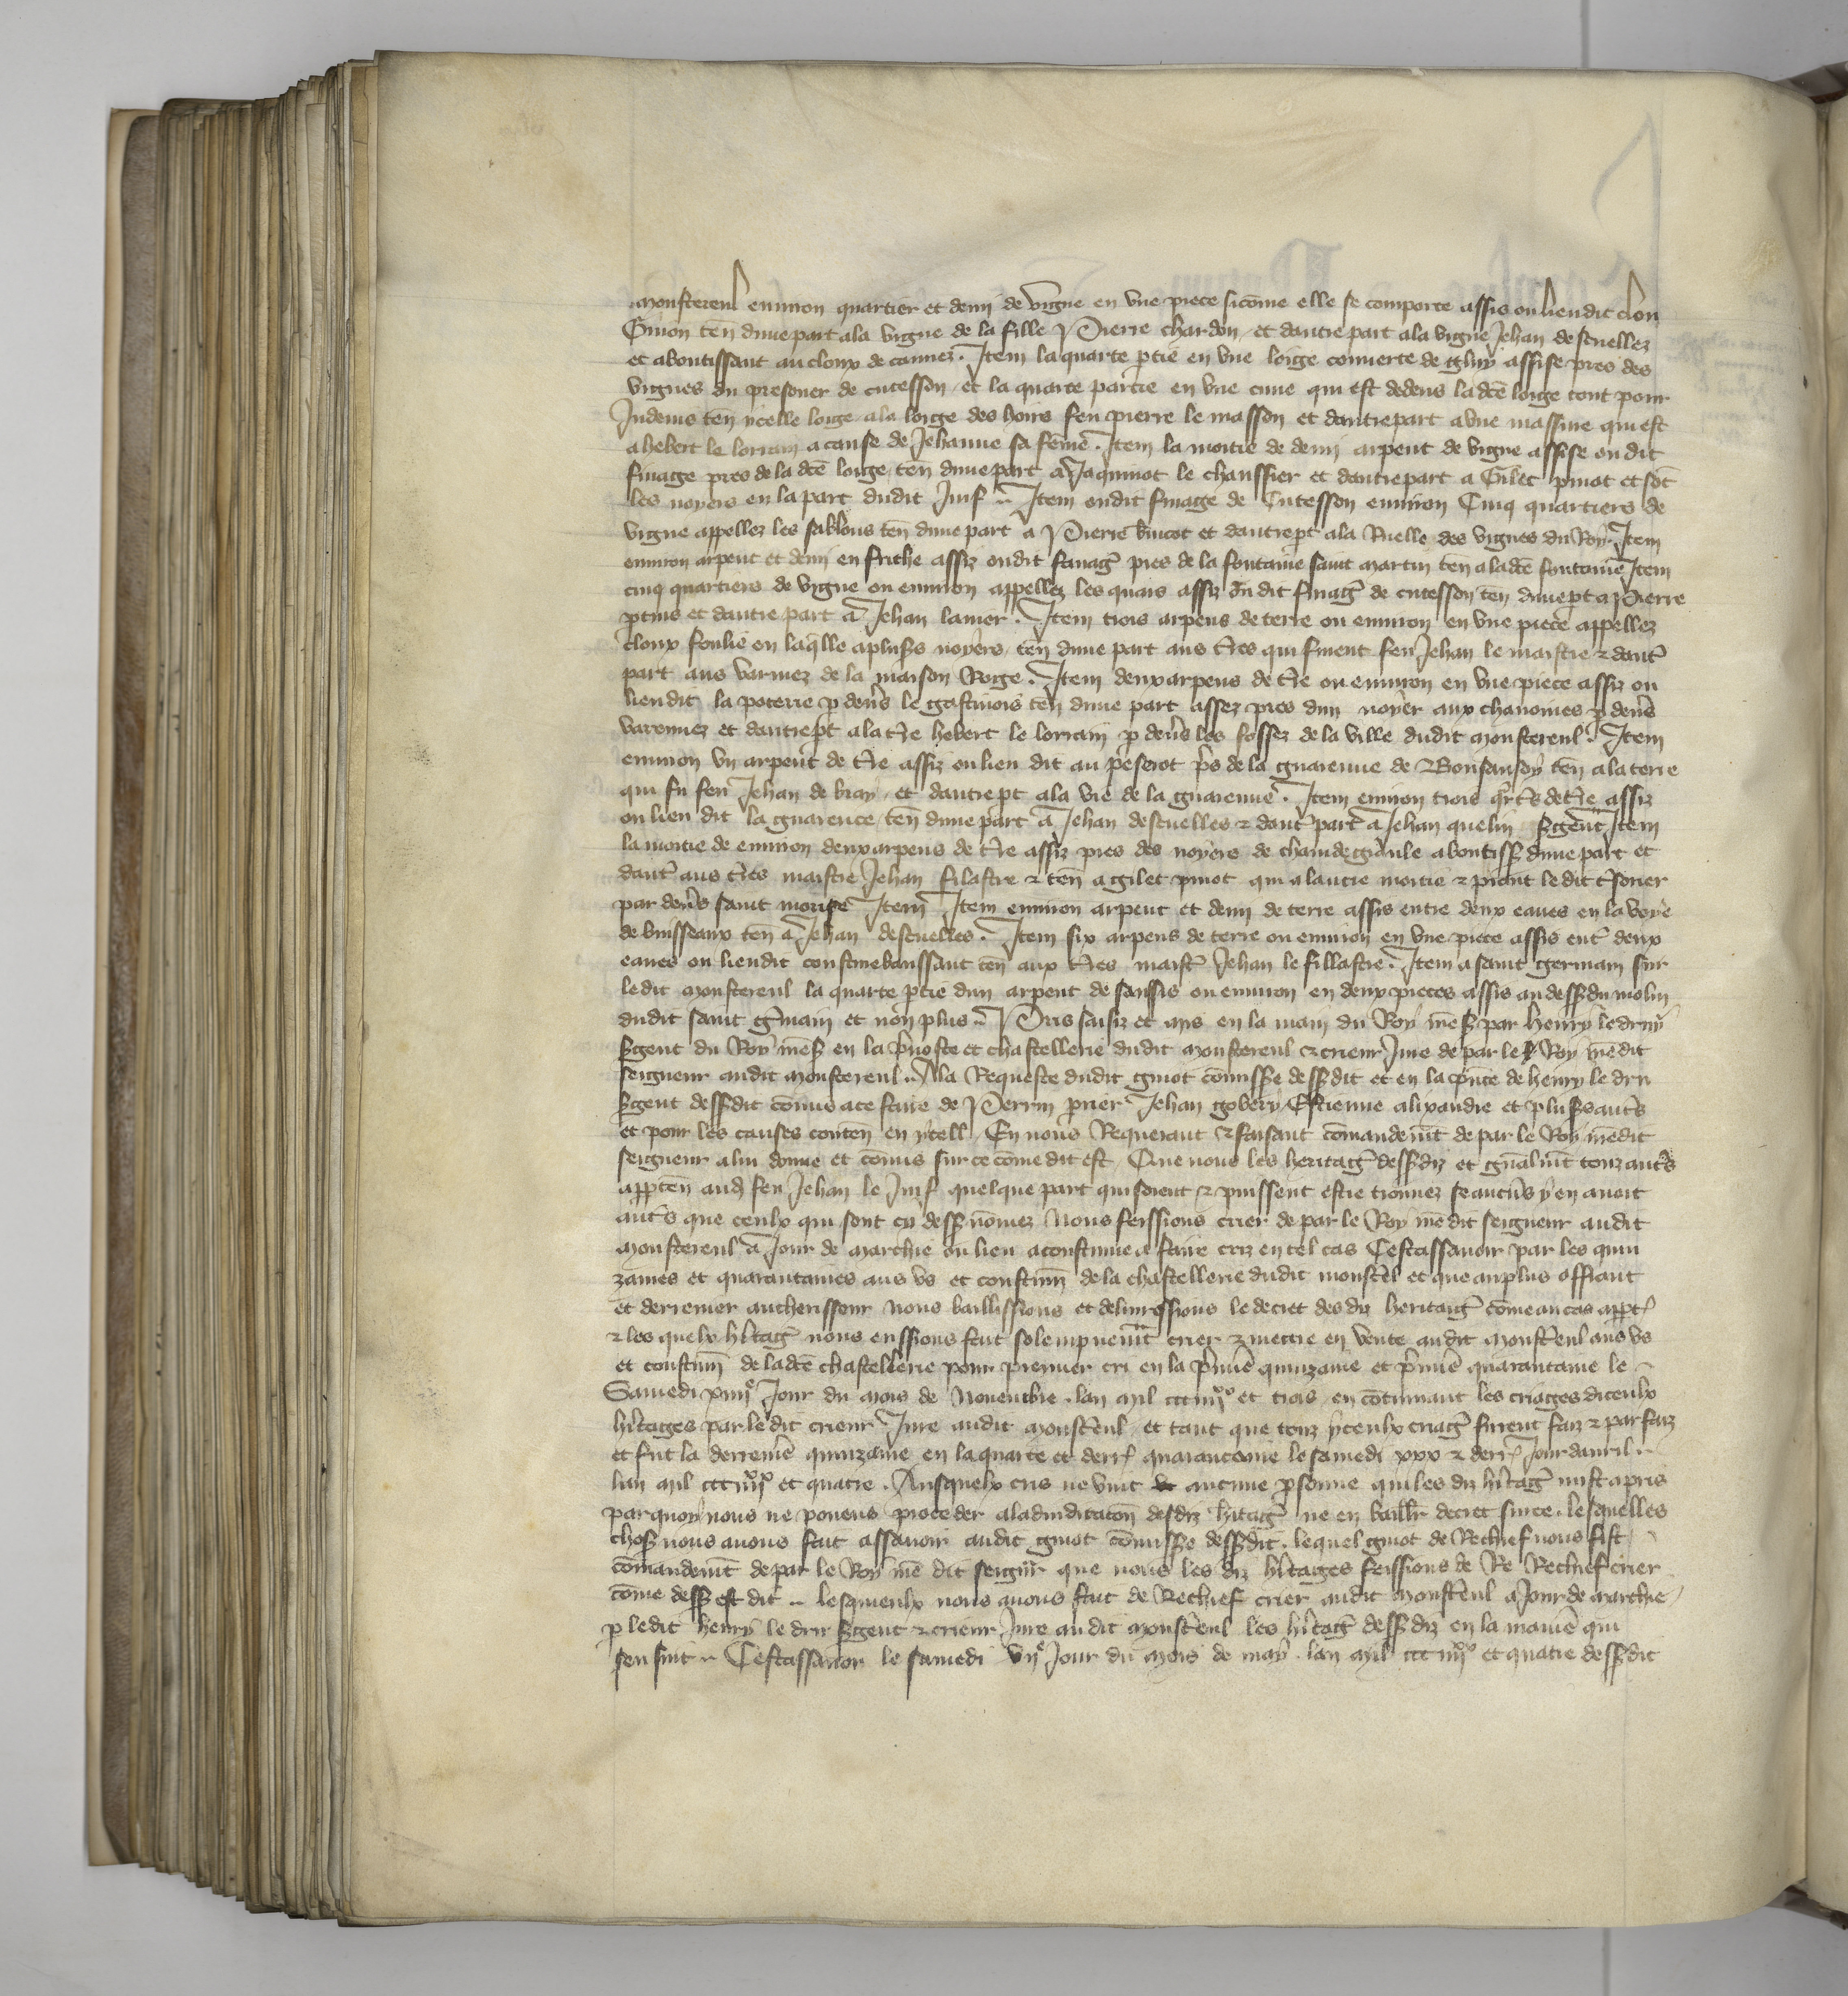 Monstereul enuiron quartier et demi de vigne en vne piece sicōme elle se comporte assis ou lieu dit clou
Guion teñ dune part ala vigne de la fille Pierre chardon et dautre part ala vigne Jehan descuelles
et aboutissant au cloux de cannez . Jtem la quarte ptie en vne loige couuerte de gluy assise pres des
vignes du presouer de cutesson et la quarte partie en vne cuue qui est dedens la dcē loige tout pour
Jndeuis teñ ycelle loige ala loige des hoirs feu pierre le masson et dautre part a vne massure qui est
a hebert le lorrain a cause de Jehanne sa fēme . Jtem la moitie de demi arpent de vigne assise ou dit
finage pres de la dcē loige teñ dune part a Jaquinot le chaussier et dautre part a Gilet pinot et sōt
les noyers en la part dudit Juif Jtem oudit finage de Cutesson enuiron Cinq quartiers de
vigne appellez les sablons teñ dune part a Pierre et dautrept ala Ruelle des vignes du Roy Jtem
enuiron arpent et demi en friche assiz oudit finag̃ pres de la fontaine saint martin teñ a ladcē fontaine Jtem
cinq quartiers de vigne ou enuiron appellez les quais assiz ou dit finag̃ de cutesson teñ dune pt a Pierre
et dautre part a Jehan lamer . Jtem trois arpens de terre ou enuiron en vne piece appellez
cloux foulie en laqlle a plus's noyers teñ dune part aus tr̃es qui furent feu Jehan le maistre & daut̃
part aus varnnez de la maison Roige . Jtem deux arpens de tr̃e ou enuiron en vne piece assiz ou
lieu dit la poterie p deu's le gastinois teñ dune part assez pres dun noyer aux chanoines p deu's
varennez et dautrept ala tr̃e hebert le lorrain p deu's les fossez de la ville dudit monstereul . Jtem
enuiron vn arpent de tr̃e assiz ou lieu dit au p̃serot p̃s de la guarenne de Bonsanson teñ ala terre
qui fu feu Jehan de bray et dautrept ala vie de la guarenne . Jtem enuiron trois q̃rt's de tr̃e assiz
ou lieu dit la guarence teñ dune part a Jehan descuelles & daut̃ part a Jehan quelin s̃gent Jtem
la moitie de enuiron deux arpens de tr̃e assiz pres des noyers de abontiss̃ dune part et
daut̃ aus tr̃es maistre Jehan filastre & teñ a gilet pinot qui a lautre moitie & le dit
par deu's saint morise Jtem Jtem enuiron arpent et demi de terre assis entre deux eaues en la voye
de buisseaux teñ a Jehan descuelles . Jtem six arpens de terre ou enuiron en vne piece assis ent̃ deux
eaues ou lieu dit teñ aux tr̃es maist̃ Jehan le fillastre . Jtem a saint germain sur
ledit monstereul la quarte ptie dun arpent de sausis ou enuiron en deux pieces assis au dess̃ du molin
dudit saint g̃main et non plus Pris saisiz et mis en la main du Roy mes̃ par henry ledru
s̃gent du Roy mes̃ en la p̃uoste et chastellerie dudit monstereul & crieur Jure de par le Roy mē dit
seigneur audit monstereul . A la Requeste dudit guiot cōmisse dess̃dit et en la p̃nce de henry le dru
s̃gent dess̃dit cōmis a ce faire de Perrin prier Jehan gobery Estienne alixandre et plus's aut's
et pour les causes conteñ en ycell En nous Requerant & faisant cōmandem̃t de par le Roy mē dit
seigneur a lui donne et cōmis sur ce cōme dit est Que nous les heritag̃ dess̃diz et gñalm̃t touz aut's
apparteñ aud feu Jehan le Juif quelque part qui soient & puissent estre trouuez se aucūs y en auoit
aut's que ceulx qui sont cy dess̃ nōmez Nous feissions crier de par le Roy mē dit seigneur audit
monstereul a Jour de marchie ou lieu acoustume a faire criz en tel cas Cestassauoir par les quin
zaines et quarantaines aus vs et coustum̃ de la chastellerie dudit monst̃el et que au plus offrant
et derrenier ancherisseur Nous baillissions et deliurissions le decret desdiz heritaig̃ cōme au cas appt̃
& les quelx hr̃tag̃ nous eussions fait solempnem̃t crier & mettre en vente audit monst̃eul aus vs
et coustum̃ de ladcē chastellerie pour premier cri en la p̃mie quinzaine et p̃mie quarantaine le
Samedi xiiij^e Jour du mois de Nouembre lan mil ccc iiij^xx et trois en cōtinuant les criages diceulx
hr̃tages par ledit crieur Jure audit monst̃eul et tant que touz yceulx criag̃ furent faiz & parfaiz
et fut la derreniē quinzaine en la quarte et derr̃ quarantaine le samedi xxx & derr̃ Jour dauril
lan mil ccc iiij^xx et quatre . Ausquelx cris ne vint aucune psonne qui les diz hr̃tag̃ mist a pris
par quoy nous ne pouens proceder ala diudicatoñ desdiz hr̃tag̃ ne en baillr̃ decret sur ce . lesquelles
chos̃ nous auons fait assauoir audit guiot cōmisse dess̃dit . lequel guiot de Rechief nous fist
cōmandem̃t de par le Roy mē dit seigñr que nous les diz hr̃tages feissions de Re Rechief crier
cōme dess̃ est dit lesquieulx nous auons fait de Rechief crier audit monst̃eul a Jour de marchie
p ledit henry le dru s̃gent & crieur Jure audit monst̃eul les hr̃tag̃ dess̃ diz en la maniē qui
sen suit Cestassauoir le samedi vij^e Jour du mois de may lan mil ccc iiij^xx et quatre dess̃dit